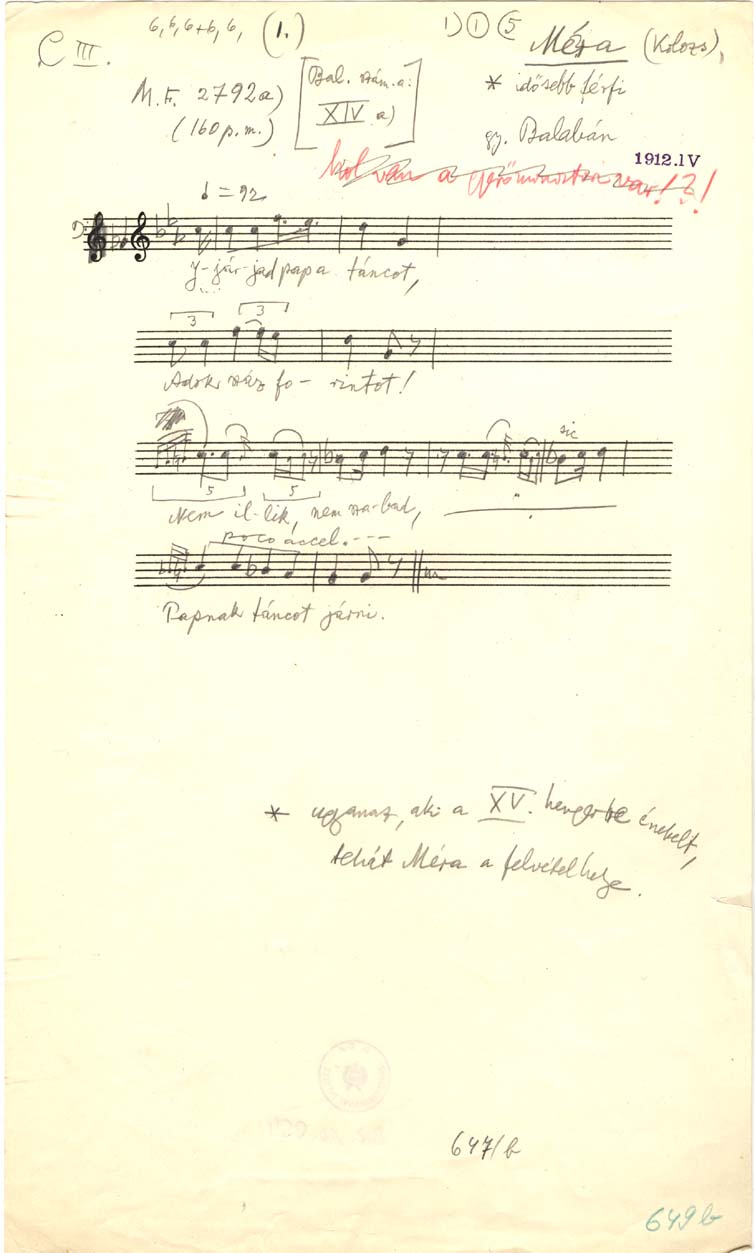 C III.
6, 6, 6+6, 6,
(1.)
1) ① 5
Méra (Kolozs),
M. F. 2792a)
(160 p.m.)
[Bal. szám. a:
XIV a)]
* idősebb férfi
gy. Balabán
1912.IV
hol van a
= 92
Y-jár-jad papa táncot,
3 3
Adok száz fo- rintot!
sic
5 5
Nem il-lik, nem sza-bad,
poco accel. ---
Papnak táncot járni.
* ugyanaz, aki a XV. hengerbe énekelt,
tehát Méra a felvétel helye.
647/b
649b